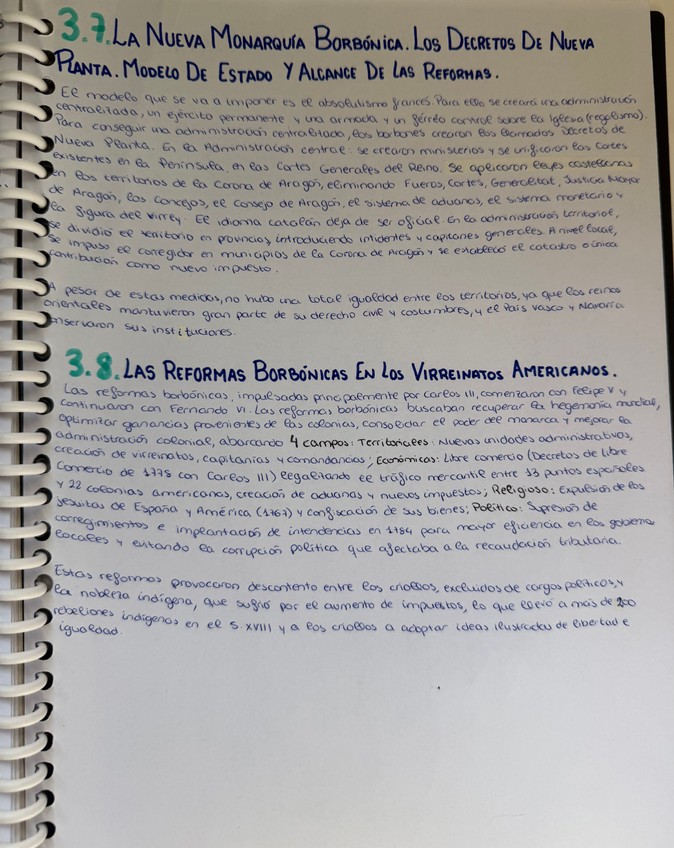 3.7. LA NUEVA MONARQUÍA BORBÓNICA. LOS DECRETOS DE NUEVA
PLANTA. MODELO DE ESTADO Y ALCANCE DE LAS REFORMAS.
El modelo que se va a imponer es el absolutismo francés. Para ello se creará una administración
centralizada, un ejército permanente y una armada y un férreo control sobre la Iglesia (regalismo).
Para conseguir una administración centralizada, los borbones crearon los llamados Decretos de
Nueva Planta. En la Administración central: se crearon ministerios y se unificaron las Cortes
existentes en la Península, en las Cortes Generales del Reino. Se aplicaron leyes castellanas
en los territorios de la Corona de Aragón, eliminando Fueros, Cortes, Generalitat, Justicia Mayor
de Aragón, los concejos, el consejo de Aragón, el sistema de aduanas, el sistema monetario y
la figura del virrey. El idioma catalán deja de ser oficial. En la administración territorial,
se dividió el territorio en provincias, introduciendo intidentes y capitanes generales. A nivel local,
se impuso el corregidor en municipios de la Corona de Aragón y se estableció el catastro o única
contribución como nuevo impuesto.
A pesar de estas medidas, no hubo una total igualdad entre los territorios, ya que los reinos
orientales mantuvieron gran parte de su derecho civil y costumbres, y el País Vasco y Navarra
conservaron sus instituciones.
3.8. LAS REFORMAS BORBÓNICAS EN LOS VIRREINATOS AMERICANOS.
Las reformas borbónicas, impulsadas principalmente por Carlos III, comenzaron con Felipe V y
continuaron con Fernando VI. Las reformas borbónicas buscaban recuperar la hegemonía mundial,
optimizar ganancias provenientes de las colonias, consolidar el poder del monarca y mejorar la
administración colonial, abarcando 4 campos: Territoriales: Nuevas unidades administrativas,
creación de virreinatos, capitanías y comandancias; Económicas: Libre comercio (Decretos de Libre
Comercio de 1778 con Carlos III) legalitando el tráfico mercantil entre 13 puntos españoles
y 22 colonias americanas, creación de aduanas y nuevos impuestos; Religioso: Expulsión de los
jesuitas de España y América (1767) y confiscación de sus bienes; Político: Supresión de
corregimientos e implantación de intendencias en 1784 para mayor eficiencia en los gobiernos
locales y evitando la corrupción política que afectaba a la recaudación tributaria.
Estas reformas provocaron descontento entre los criollos, excluidos de cargos políticos, y
la nobleza indígena, que sufrió por el aumento de impuestos, lo que llevó a más de 200
rebeliones indígenas en el S. XVIII y a los criollos a adoptar ideas ilustradas de libertad e
igualdad.